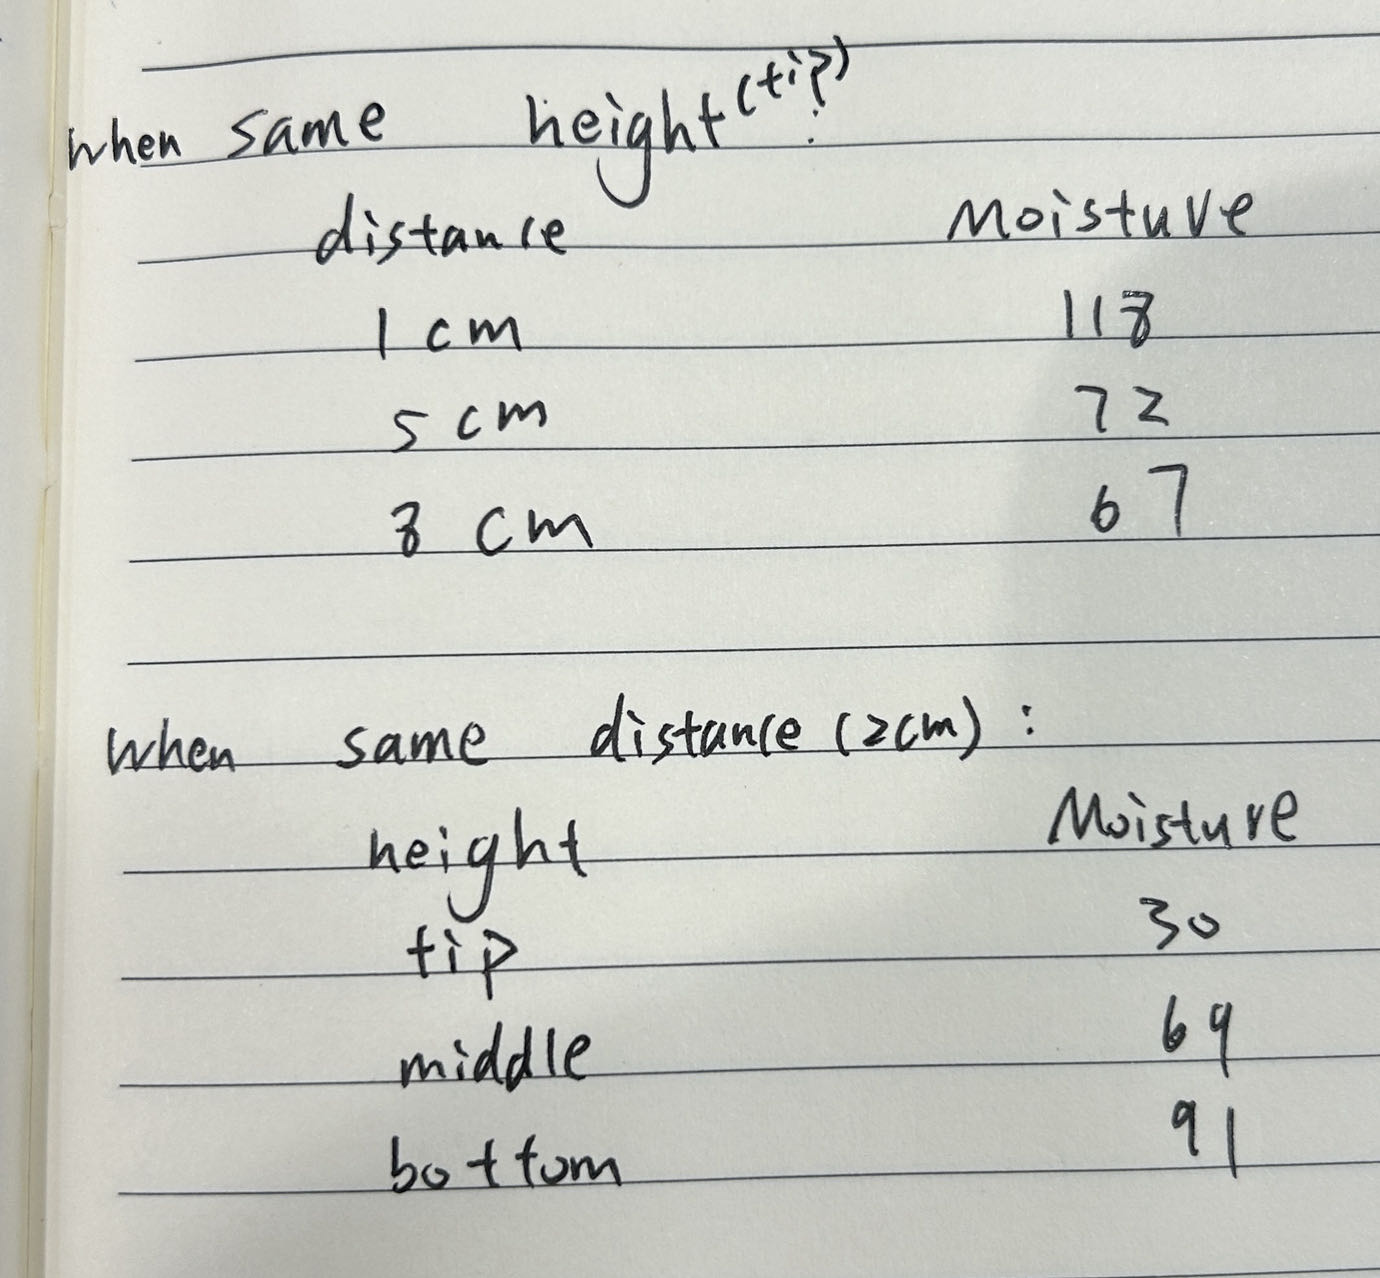 when same height (tip):
distance Moisture
1 cm 118
5 cm 72
8 cm 67
when same distance (2cm) :
height Moisture
tip 30
middle 69
bottom 91